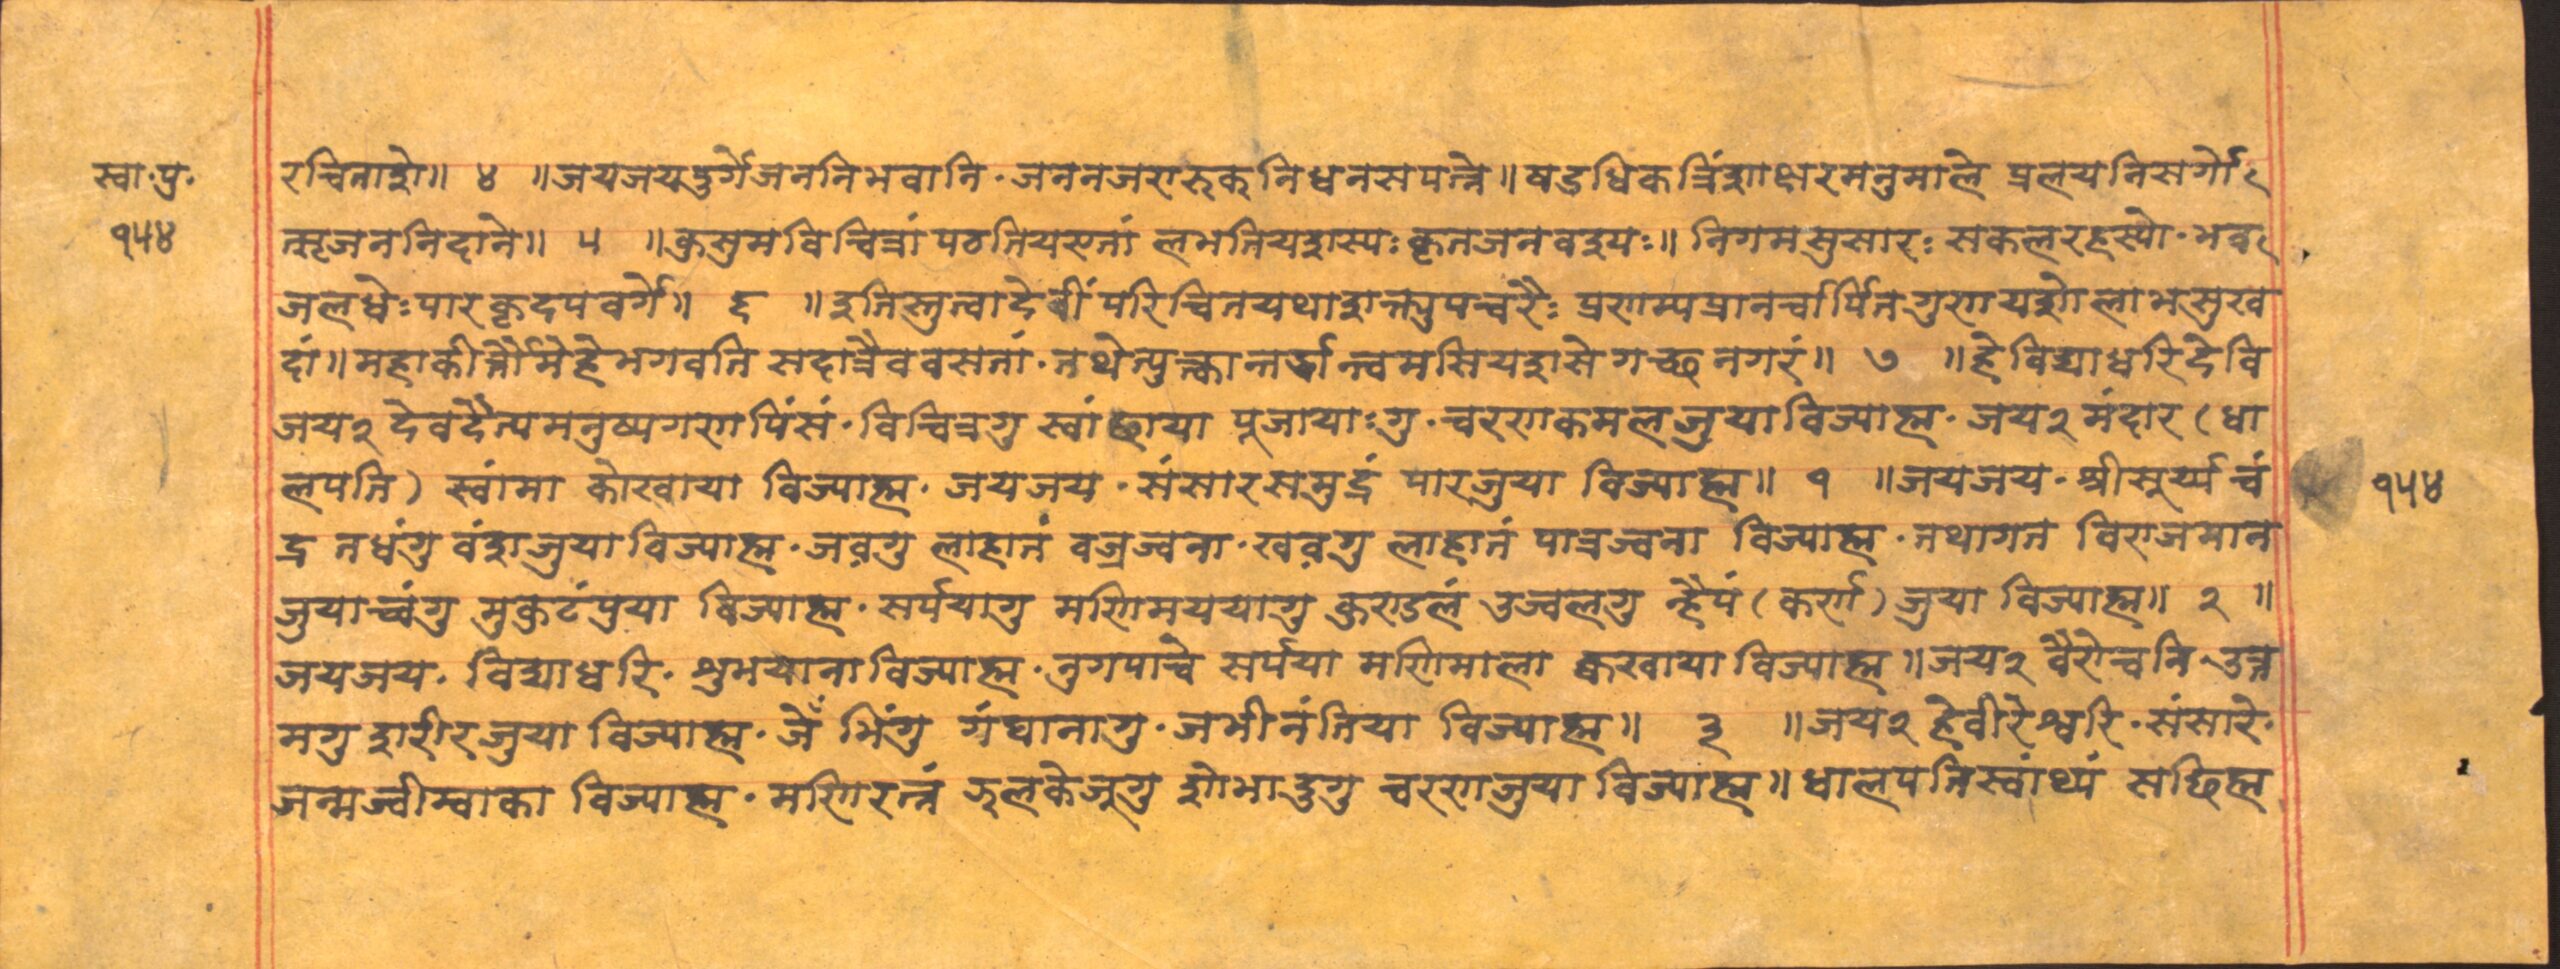 स्वा॰पु॰
१५४
रचिताशे॥ ४ ॥जयजयदुर्गेजननिभवानि॰जननजरारुक्निधनसपत्ने॥षडधिकत्रिंशाक्षरमनुमाले प्रलयनिसर्गो
त्सृजननिदाने॥ ५ ॥कुसुमविचित्रां पठतियएतां लभतियशस्यः कृतजनवश्यः॥ निगमसुसारः सकलरहस्यो॰भव
जलधेःपारकृदपवर्गे॥ ६ ॥इतिस्तुत्वादेवीं परिचितयथाशक्त्युपचरैः प्रणम्यप्रानर्चार्पितगुणयशोलाभसुख
दां॥महाकीर्त्तौमेहेभगवति सदात्रैववसतां॰तथेत्युक्त्वान्तर्द्धानत्वमसियशसे गच्छ नगरं॥ ७ ॥हे विद्याधरि देवि
जय२ देवदैत्यमनुष्यगणपिंसं॰विचित्रगु स्वां छाया पूजायाःगु॰चरणकमल जुयाविज्याह्म॰जय२ मंदार (धा
लपति) स्वांमा कोखाया विज्याह्म॰ जयजय॰संसारसमुद्रं पारजुया विज्याह्म॥ १ ॥जयजय॰श्रीसूर्य्य चं
द्र नधंगु वंशजुयाविज्याह्म॰जव़गु लाहातं वज्रज्वना॰खव़गु लाहातं पात्रज्वना विज्याह्म॰तथागत विराजमान
जुयाच्वंगु मुकुटंपुया विज्याह्म॰सर्पयागु मणिमययागु कुण्डलं उज्वलगु न्हैपं (कर्ण) जुया विज्याह्म॥ २ ॥
जयजय॰ विद्याधरि॰ शुभयाना विज्याह्म॰नुगपाचे सर्पया मणिमाला क्वखाया विज्याह्म॥जय२ वैरोचनि॰उत्त
मगु शरीरजुया विज्याह्म॰जँ भिंगु गंघानागु॰जभीनंतिया विज्याह्म॥ ३ ॥जय२ हेवीरेश्वरि॰संसारे॰
जन्मज्वीम्वाका विज्याह्म॰मणिरत्नं झलकेजूगु शोभादुगु चरणजुया विज्याह्म॥धालपतिस्वांथ्यं सछिह्म
१५४